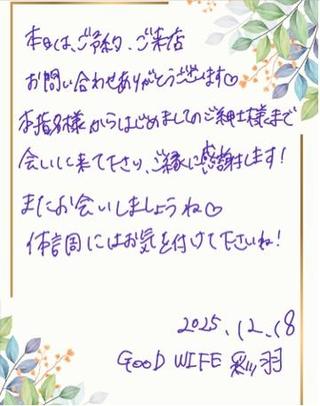 本日は、ご予約、ご来店
お問い合わせありがとうございます♡
本指名様からはじめましてのご紳士様まで
会いに来て下さり、ご縁に感謝します!
またお会いしましょうね♡
体調にはお気を付けて下さいね!
2025.12.18
GOOD WIFE 彩羽